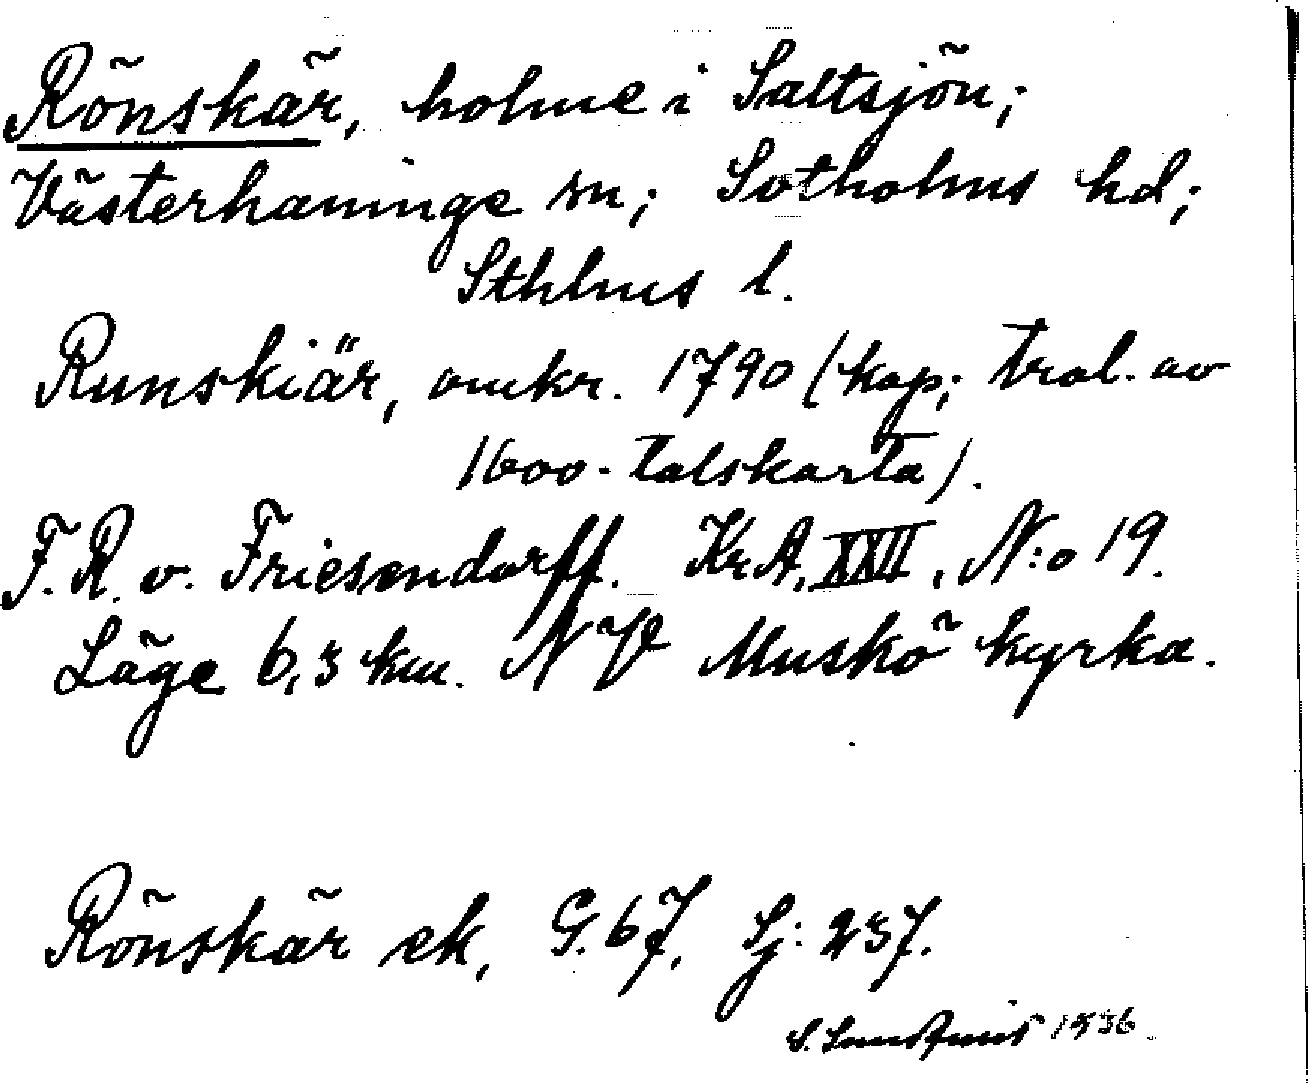 Rönskär, holme i Saltsjön;
Västerhaninge sn; Sotholms hd;
Sthlms l.
Runskiär, omkr. 1790 (kop; trol. av
1600-talskarta).
F. R. v. Friesendorff. Kr.A. XXII, N:o 19.
Läge 6,3 km. NV Muskö kyrka.
Rönskär ek, G. 67, Sj: 237.
S. 1936.